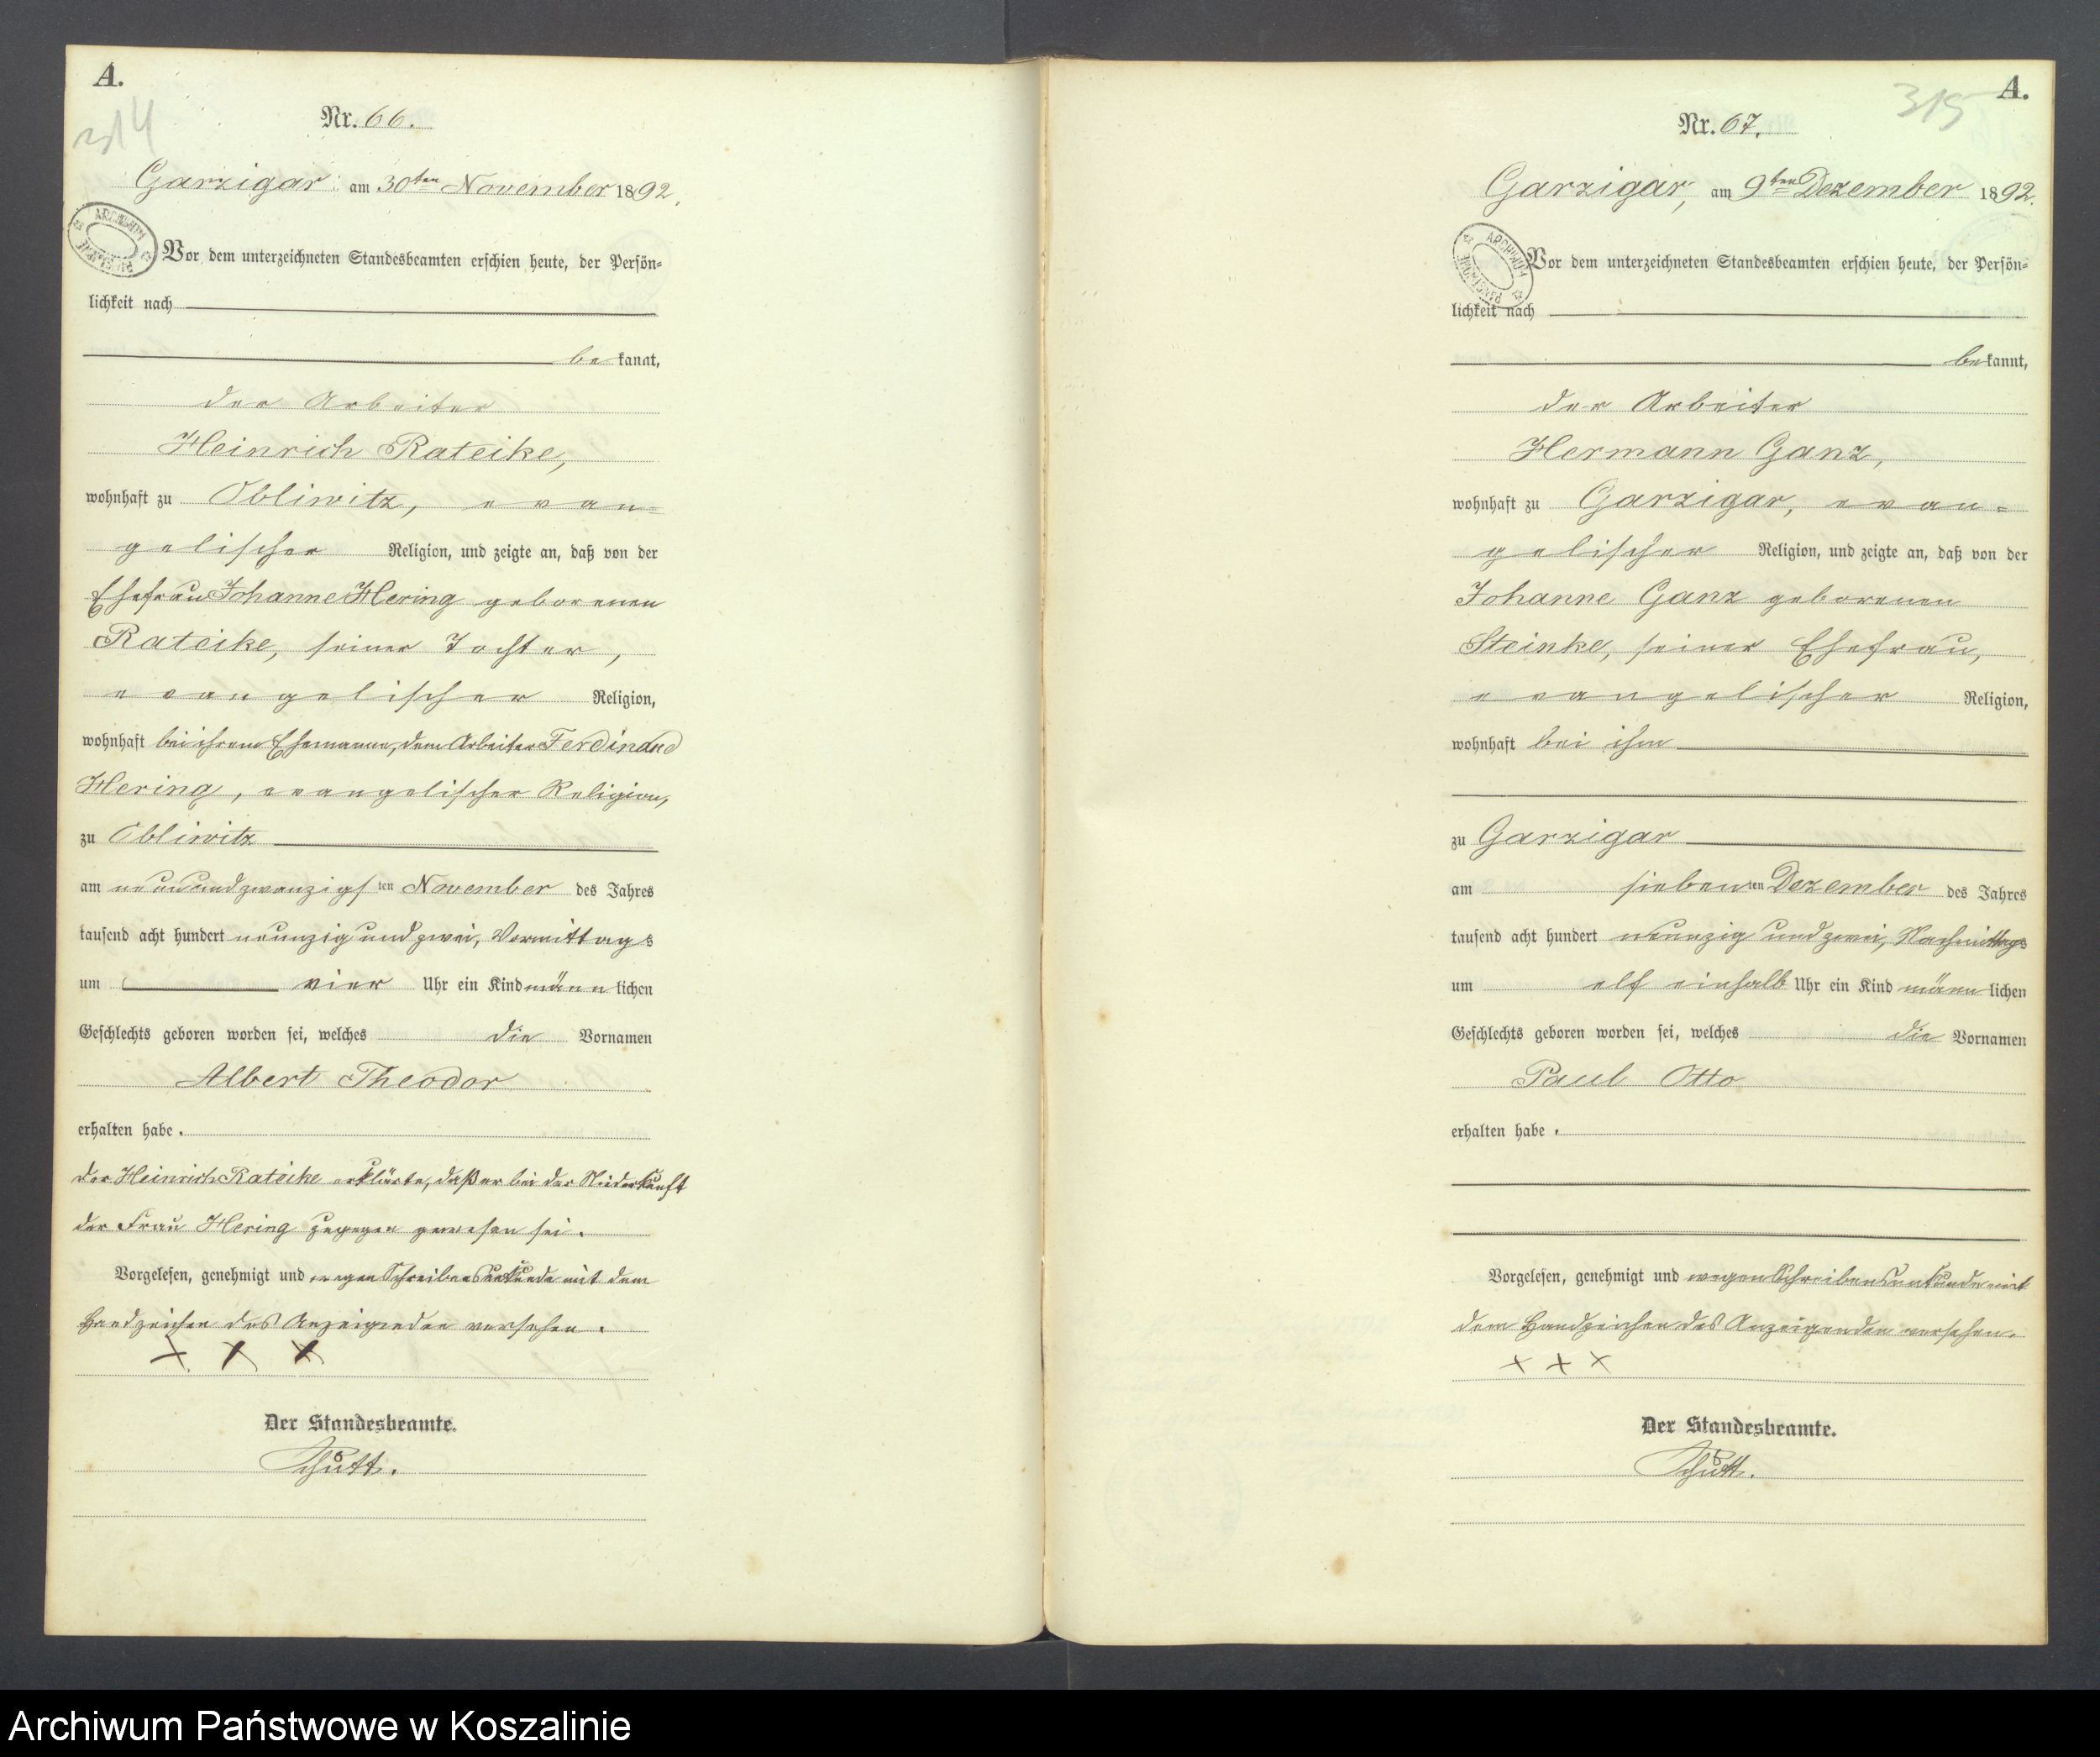 A.
314
Nr. 66.
Garzigar am 30ten November 1892.
ARCHIWUM
Vor dem unterzeichneten Standesbeamten erschien heute, der Persön=
lichkeit nach
be kannt,
der Arbeiter
Heinrich Rateike,
wohnhaft zu Obliwitz, evan=
gelischer Religion, und zeigte an, daß von der
Ehefrau Johanne Hering geborenen
Rateike, seiner Tochter,
evangelischer Religion,
wohnhaft bei ihrem Ehemanne, dem Arbeiter Ferdinand
Hering, evangelischer Religion,
zu Obliwitz
am neunundzwanzigsten November des Jahres
tausend acht hundert neunzig und zwei, Vormittags
um vier Uhr ein Kind männlichen
Geschlechts geboren worden sei, welches die Vornamen
Albert Theodor
erhalten habe.
Der Heinrich Rateike erklärte, daß er bei der Niederkunft
der Frau Hering zugegen gewesen sei.
Vorgelesen, genehmigt und wegen Schreibensunkunde mit dem
Handzeichen des Anzeigenden versehen.
X X X
Der Standesbeamte.
Schütt.
A.
315
Nr. 67.
Garzigar, am 9ten Dezember 1892.
ARCHIWUM
Vor dem unterzeichneten Standesbeamten erschien heute, der Persön=
lichkeit nach
bekannt,
der Arbeiter
Hermann Ganz,
wohnhaft zu Garzigar, evan=
gelischer Religion, und zeigte an, daß von der
Johanne Ganz geborenen
Steinke, seiner Ehefrau,
evangelischer Religion,
wohnhaft bei ihm
zu Garzigar
am siebenten Dezember des Jahres
tausend acht hundert neunzig und zwei, Nachmittags
um elf einhalb Uhr ein Kind männlichen
Geschlechts geboren worden sei, welches die Vornamen
Paul Otto
erhalten habe.
Vorgelesen, genehmigt und wegen Schreibensunkunde mit
dem Handzeichen des Anzeigenden versehen.
X X X
Der Standesbeamte.
Schütt.
Archiwum Państwowe w Koszalinie